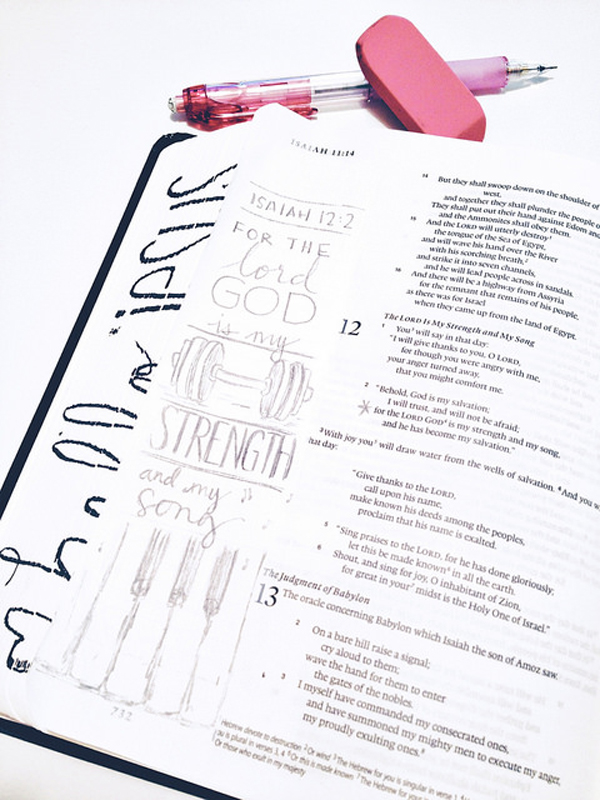 ISAIAH 11:14
ISAIAH 12:2
FOR THE
lord
GOD
is my
STRENGTH
and my
song
732
14 But they shall swoop down on the shoulder of
west,
and together they shall plunder the people o
They shall put out their hand against Edom and
and the Ammonites shall obey them.
15 And the LORD will utterly destroy
the tongue of the Sea of Egypt,
and will wave his hand over the River
with his scorching breath,2
and strike it into seven channels,
and he will lead people across in sandals.
16 And there will be a highway from Assyria
for the remnant that remains of his people,
as there was for Israel
when they came up from the land of Egypt.
The LORD Is My Strength and My Song
12 1 You3 will say in that day:
"I will give thanks to you, O LORD,
for though you were angry with me,
your anger turned away,
that you might comfort me.
2 "Behold, God is my salvation;
I will trust, and will not be afraid;
for the LORD GOD4 is my strength and my song,
and he has become my salvation."
3 With joy you5 will draw water from the wells of salvation. 4 And you w
hat day:
"Give thanks to the LORD,
call upon his name,
make known his deeds among the peoples,
proclaim that his name is exalted.
5 "Sing praises to the LORD, for he has done gloriously;
let this be made known6 in all the earth.
6 Shout, and sing for joy, O inhabitant of Zion,
for great in your7 midst is the Holy One of Israel."
The Judgment of Babylon
13 The oracle concerning Babylon which Isaiah the son of Amoz saw.
2 On a bare hill raise a signal;
cry aloud to them;
wave the hand for them to enter
the gates of the nobles.
3 I myself have commanded my consecrated ones,
and have summoned my mighty men to execute my anger,
my proudly exulting ones.8
Hebrew devote to destruction 2 Or wind 3 The Hebrew for you is singular in verse 1
ou is plural in verses 3, 4 6 Or this is made known 7 The Hebrew for your
Or those who exult in my majesty